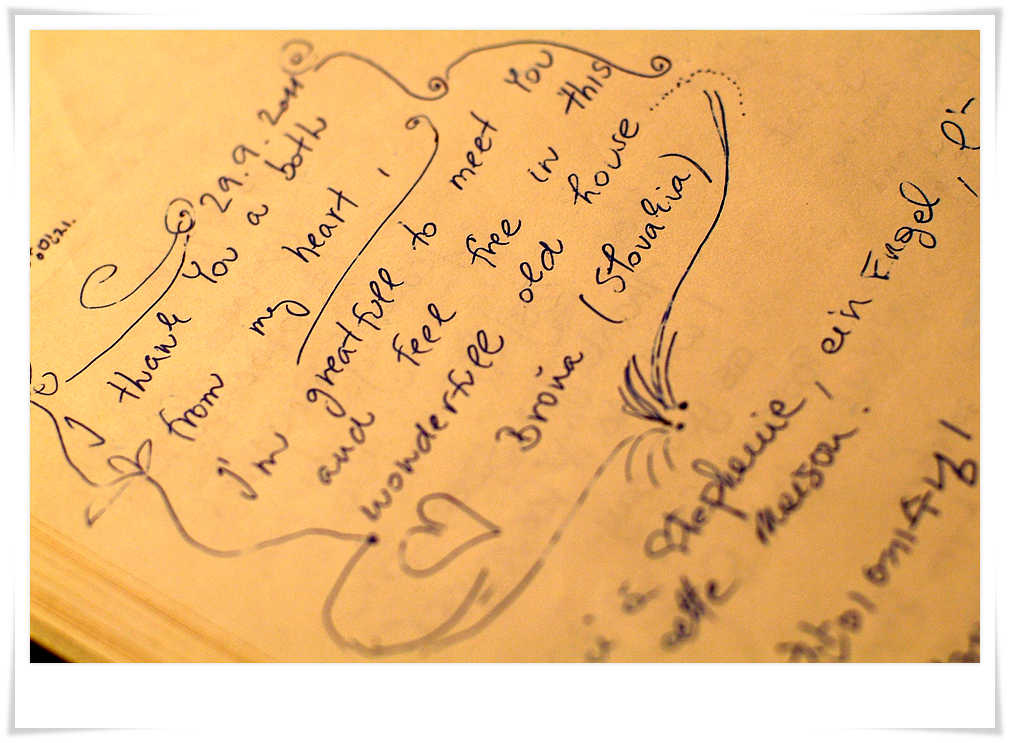 29.9.2011
I thank You a both
from my heart,
I'm greatfull to meet You
and feel free in this
wonderfull old house
Broňa (Slovakia)
à Stephenie, ein Engel,
cette maison.